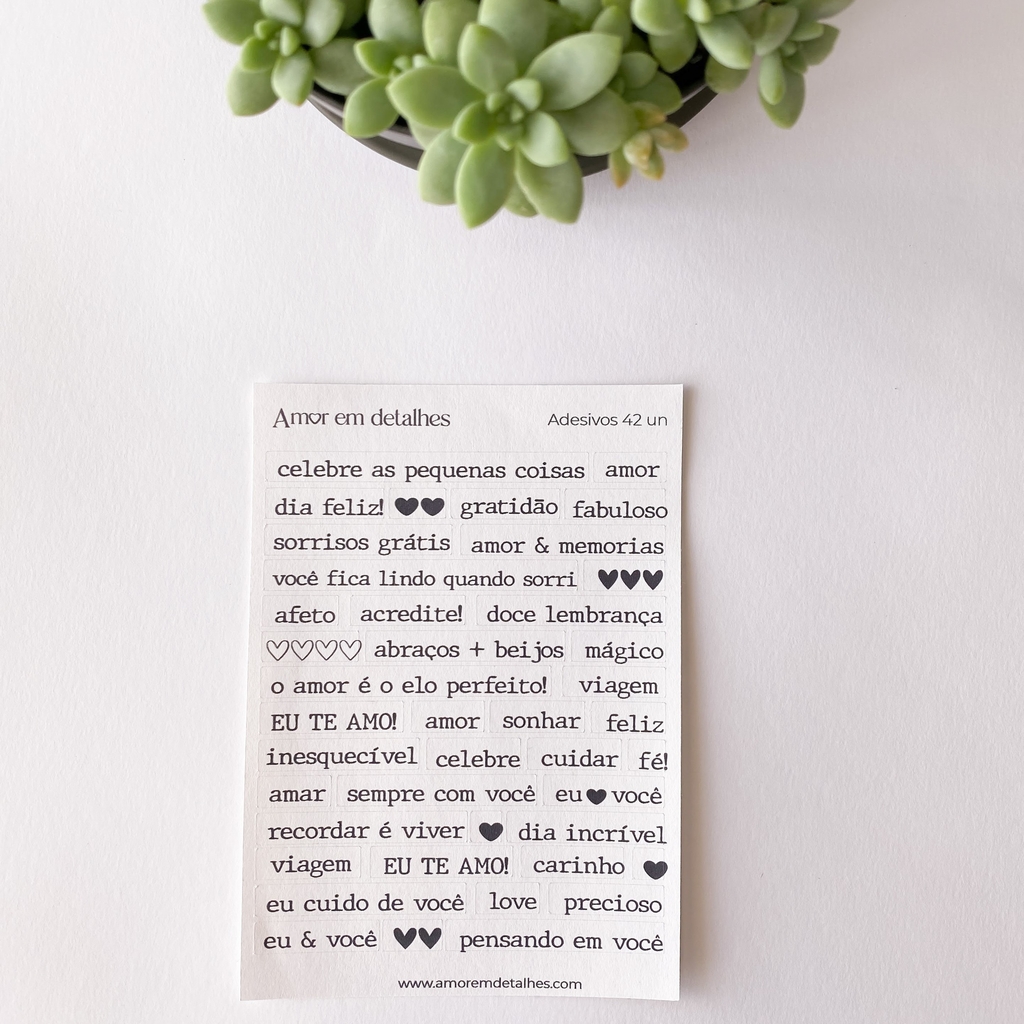 Amor em detalhes Adesivos 42 un
celebre as pequenas coisas amor
dia feliz! ♥♥ gratidão fabuloso
sorrisos grátis amor & memorias
você fica lindo quando sorri ♥♥♥
afeto acredite! doce lembrança
♡♡♡♡ abraços + beijos mágico
o amor é o elo perfeito! viagem
EU TE AMO! amor sonhar feliz
inesquecível celebre cuidar fé!
amar sempre com você eu♥você
recordar é viver ♥ dia incrível
viagem EU TE AMO! carinho ♥
eu cuido de você love precioso
eu & você ♥♥ pensando em você
www.amoremdetalhes.com